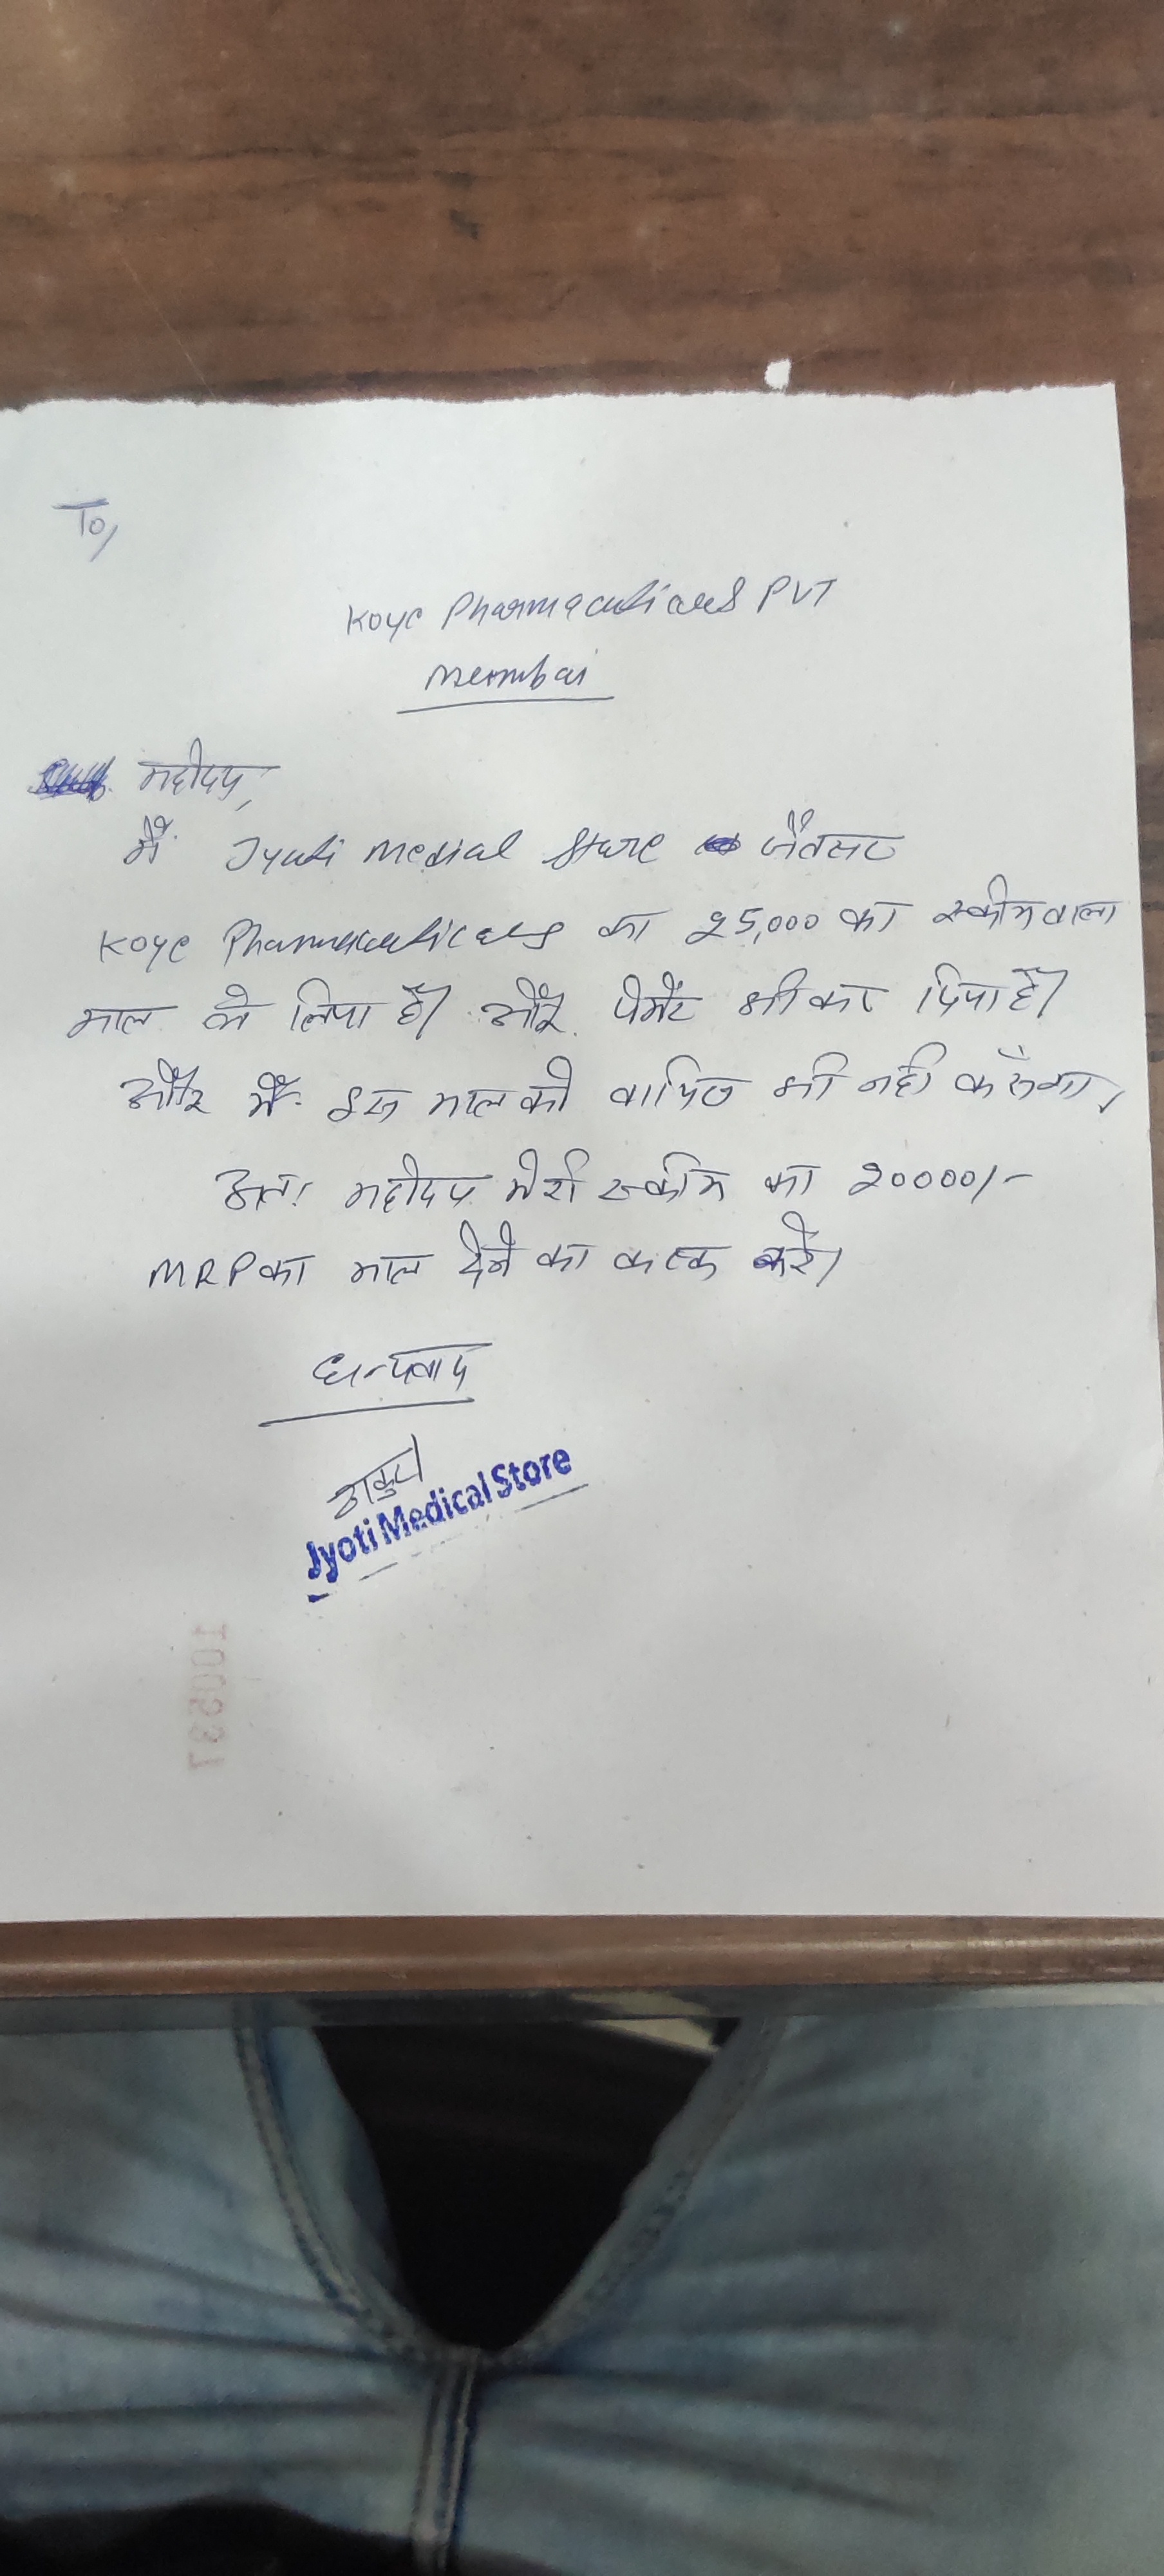 To,
Koye Pharmaceuticals PVT
Mumbai
महोदय,
मैं Jyoti Medical Store जैतसर
Koye Pharmaceuticals का 25,000 का स्कीमवाला
माल ले लिया है। और पेमेंट भी कर दिया है।
और मैं इस माल को वापिस भी नही करूंगा,
अतः महोदय मेरी स्कीम का 20000/-
MRP का माल देने का कष्ट करे।
धन्यवाद
Jyoti Medical Store
100537